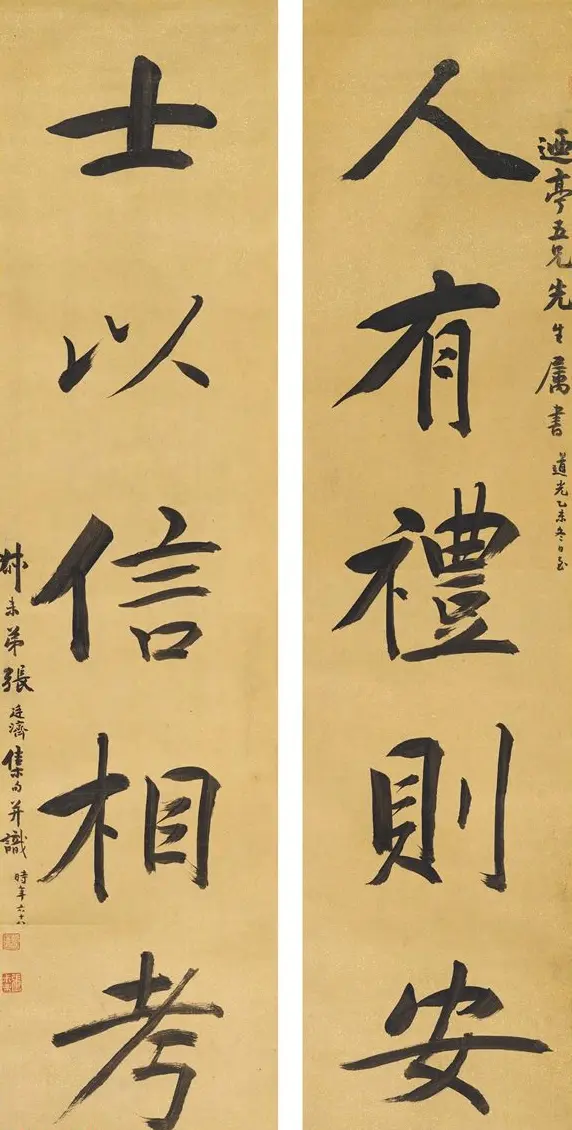 迺亭五兄先生属書 道光乙未冬日至
人有禮則安
士以信相考
叔未弟張廷濟集句并識 時年六十八